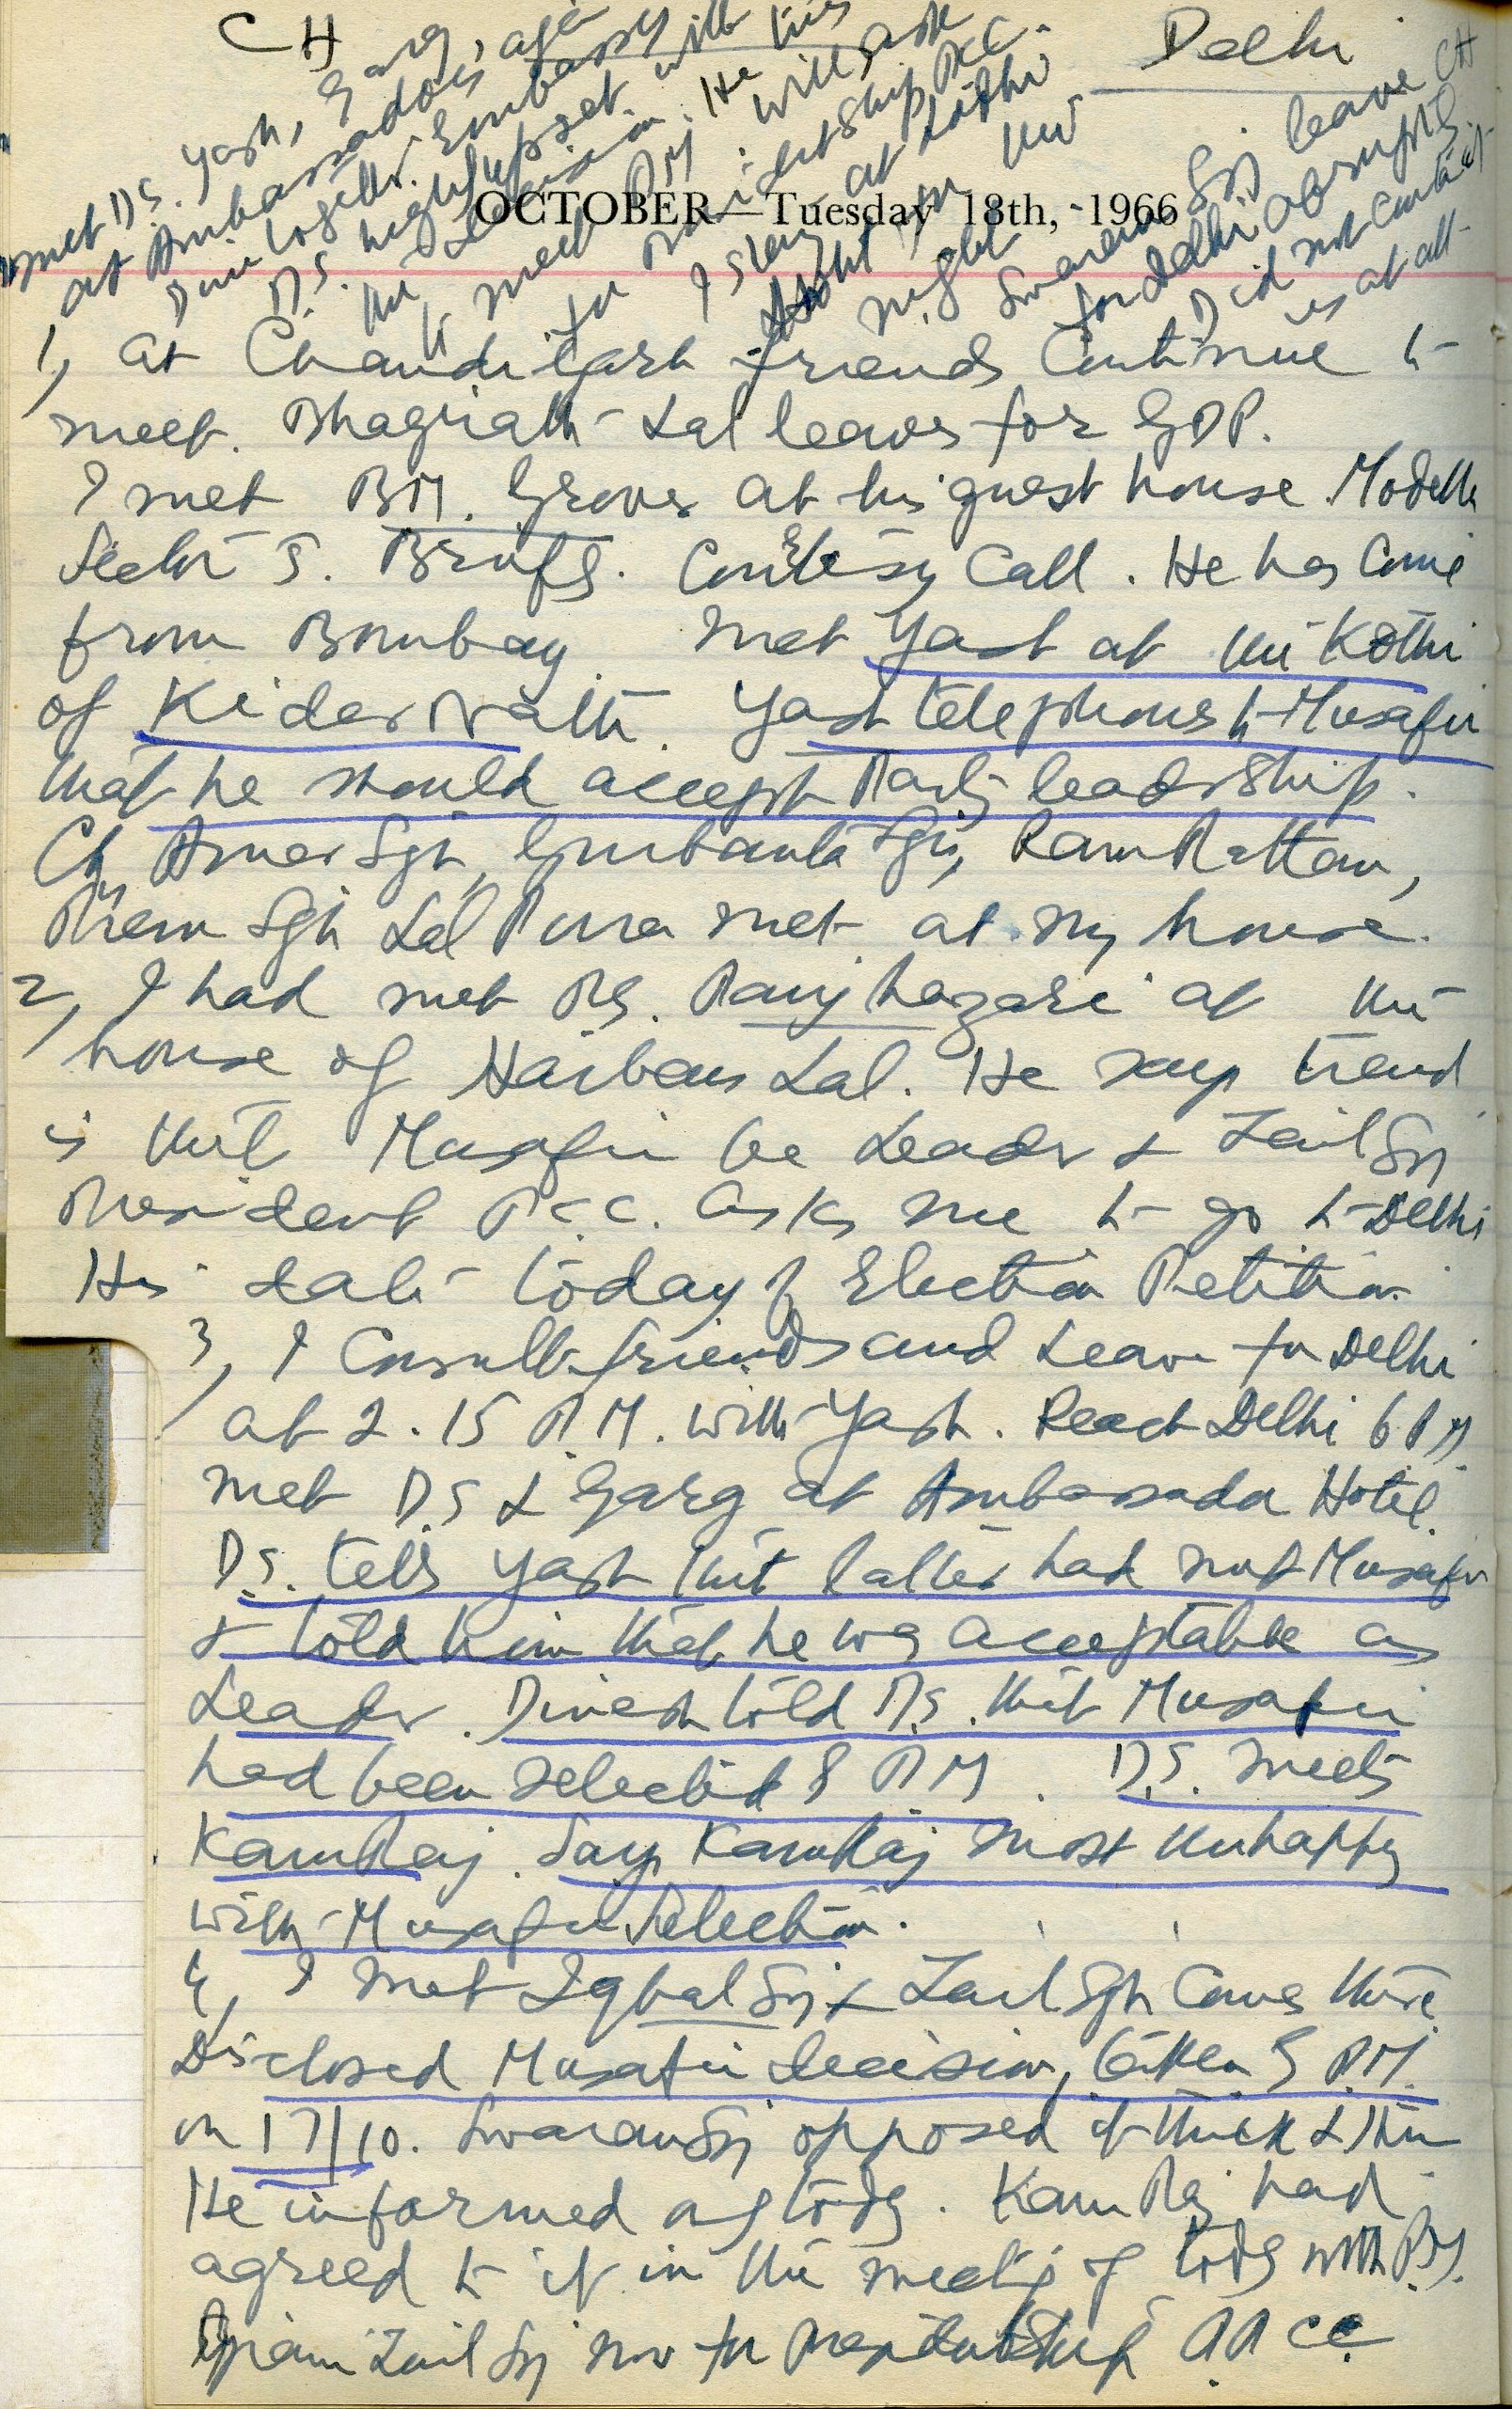 CH
Delhi
met D.S. Yash, Garg, again
at Ambassador
Dine together. Embassy
D.S. highly upset with
the decision. He tries
to meet PM will ask
for Presidentship PCC.
I stay at Lodhi
night in the
Swaran Sgh leave CH
for Delhi abruptly
Did not contact
us at all
OCTOBER—Tuesday 18th, 1966
1, At Chandigarh friends continue to
meet. Bhagirath Lal leaves for GDP.
I met B.M. Grover at his guest house Modella
Sector 5. Briefs. Courtesy Call. He has come
from Bombay. Met Yash at the Kothi
of Kidar Nath. Yash telephones to Musafir
that he should accept Party leadership.
Ch Amar Sgh, Gurbanta Sgh, Ram Rattan,
Prem Sgh Lal Pura met at my house.
2, I had met Panjhazari at the
house of Harbans Lal. He says trend
is that Musafir be Leader & Zail Sgh
President P.C.C. Asks me to go to Delhi
His date today of Election Petition.
3, I consult friends and Leave for Delhi
at 2.15 P.M. with Yash. Reach Delhi 6 P.M.
met D.S & Garg at Ambassador Hotel.
D.S. tells Yash that latter had met Musafir
& told him that he was acceptable as
Leader. Dinesh told D.S. that Musafir
had been selected 8 P.M. D.S. meets
KamRaj. Says KamRaj most unhappy
with Musafir Selection.
4, I met Iqbal Sgh & Zail Sgh Comes there
Disclosed Musafir decision, taken 5 P.M.
on 17/10. Swaran Sgh opposed it thick & thin
He informed today. KamRaj had
agreed to it in the meeting of today with P.M.
Giani Zail Sgh now for Presidentship P.P.CC.